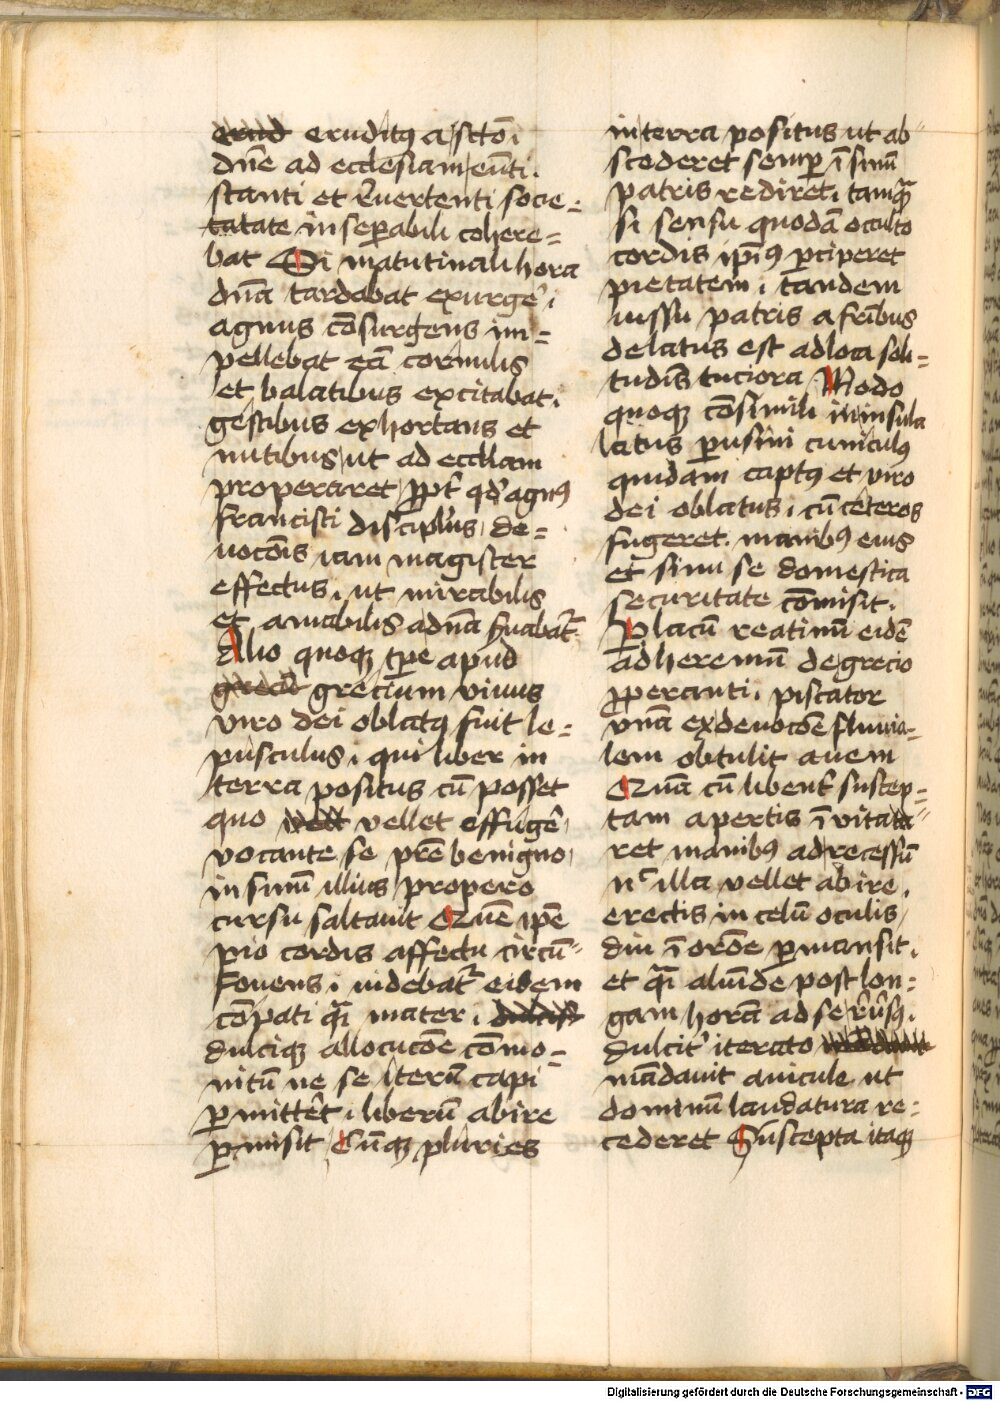 eruditꝯ a sctōi
dn̄e ad ecclesiam eūti.
stanti et r̄uertenti socie=
tatate inseꝑabili cohere=
bat Si matutinali hora
dn̄a tardabat exurge᷑ i
agnus cōsurgens im=
pellebat eā cornulis
et balatibus excitabat.
gestibus exhortans et
nutibus ut ad eccliam
properaret ꝓpt᷑ qd᷑ agnꝯ
francisci discipl᷑us de=
uocōis iam magister
effectus. ut mirabilis
et amabilis a dn̄a s᷑uabat᷑
Alio quoqꝫ tp̄e apud
grecium viuus
viro dei oblatꝯ fuit le=
pusculus. qui liber in
terra positus cū posset
quo vellet effuge᷑
vocante se pr̄e benigno
in sinū illius propero
cursu saltauit Quē ip̄e
pio cordis affectu circū=
fouens. uidebat᷑ eidem
cōpati qᷓi mater.
dulciqꝫ allocucōe cōmo=
nitū ne se iterū capi
ꝑmittet᷑. liberū abire
ꝑmisit Cūqꝫ pluries
in terra positus ut ab=
scederet semꝑ ī sinū
patris rediret. tamqᷓ
si sensu quodā occulto
cordis ip̄iꝯ ꝑciperet
pietatem. tandem
iussu patris a fr̄ibus
delatus est ad loca soli=
tudīs tuciora Modo
quoqꝫ cōsimili in insula
latus ꝑusini cuniculꝯ
quidam captꝯ et viro
dei oblatus. cū ceteros
fugeret. manibꝯ eius
et sinu se domestica
securitate cōmisit.
Placū reatinū eidē
ad heremū de grecio
ꝓperanti. piscator
vnā ex deuocōe fluuia=
lem obtulit auem
Quā cū libent᷑ suscep=
tam apertis īuitata=
ret manibꝯ ad recessū
nᶜ illa vellet abire.
erectis in celū oculis
diu ī orōe ꝑmansit.
et qᷓi aliūde post lon=
gam horā ad se r̄u᷑sꝯ.
dulcit᷑ iterato
mādauit auicule ut
dominū laudatura re=
cederet Suscepta itaqꝫ
Digitalisierung gefördert durch die Deutsche Forschungsgemeinschaft - DFG